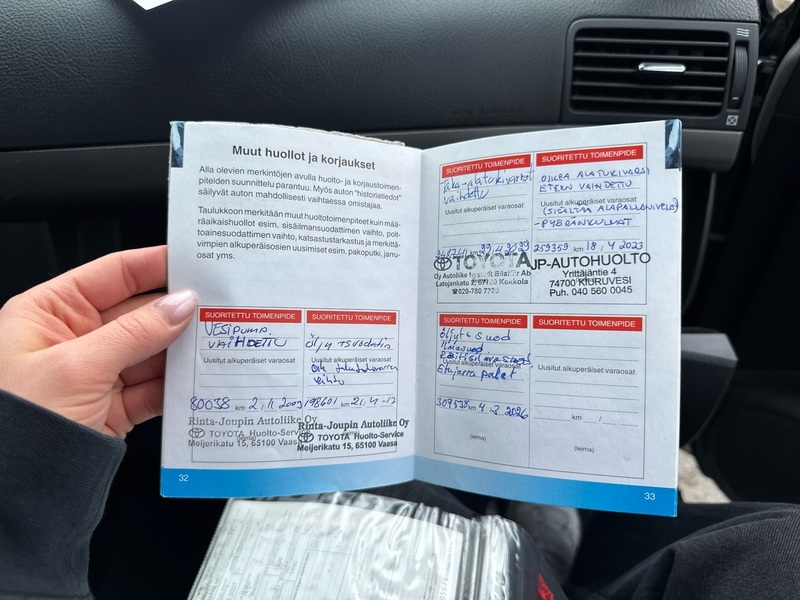 Muut huollot ja korjaukset
Alla olevien merkintöjen avulla huolto- ja korjaustoimen-
piteiden suunnittelu parantuu. Myös auton "historiatiedot"
säilyvät auton mahdollisesti vaihtaessa omistajaa.
Taulukkoon merkitään muut huoltotoimenpiteet kuin mää-
räaikaishuollot esim. sisäilmansuodattimen vaihto, polt-
toainesuodattimen vaihto, katsastustarkastus ja merkittä-
vimpien alkuperäisosien uusimiset esim. pakoputki, jarru-
osat yms.
SUORITETTU TOIMENPIDE
VESIPUMP.
VAIHDETTU
Uusitut alkuperäiset varaosat
80038 km 2.11.2009
Rinta-Joupin Autoliike Oy
TOYOTA Huolto-Service
Meijerikatu 15, 65100 Vaasa
SUORITETTU TOIMENPIDE
Öljy + suodatin
Uusitut alkuperäiset varaosat
vaihto
198601 km 21.4-17
Rinta-Joupin Autoliike Oy
TOYOTA Huolto-Service
Meijerikatu 15, 65100 Vaasa
32
SUORITETTU TOIMENPIDE
vaihdettu
Uusitut alkuperäiset varaosat
km
TOYOTA
Oy Autoliike Nyström Bilaffär Ab
Latojankatu 2, 67700 Kokkola
SUORITETTU TOIMENPIDE
OIKEA ALATUKIVARSI
ETEEN VAIHDETTU
Uusitut alkuperäiset varaosat
(SISÄLTÄÄ ALAPALLONIVELO)
-PYÖRÄNKULMAT
259359 km 18.4 2023
JP-AUTOHUOLTO
Yrittäjäntie 4
74700 KIURUVESI
Puh. 040 560 0045
SUORITETTU TOIMENPIDE
Öljyt + suod
Ilmasuod
Uusitut alkuperäiset varaosat
Etujarru palat
309538 km 4.2.2026
(leima)
SUORITETTU TOIMENPIDE
Uusitut alkuperäiset varaosat
km / .
(leima)
33